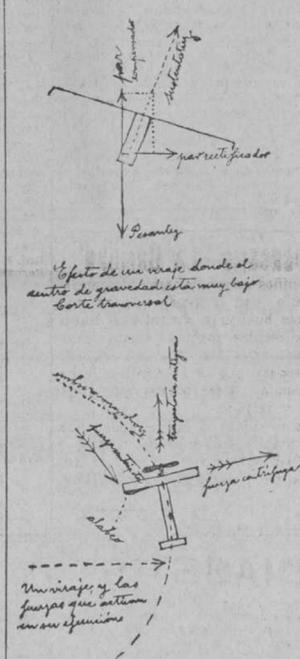 par
compensador
sustentatriz
par rectificador
Pesantez
Efecto de un viraje donde el
sentro de gravedad esta muy bajo
Corte transversal
trayectoria antigua
fuerza centrifuga
alabeo
Un viraje, y las
fuerzas que actuan
en su ejecucións